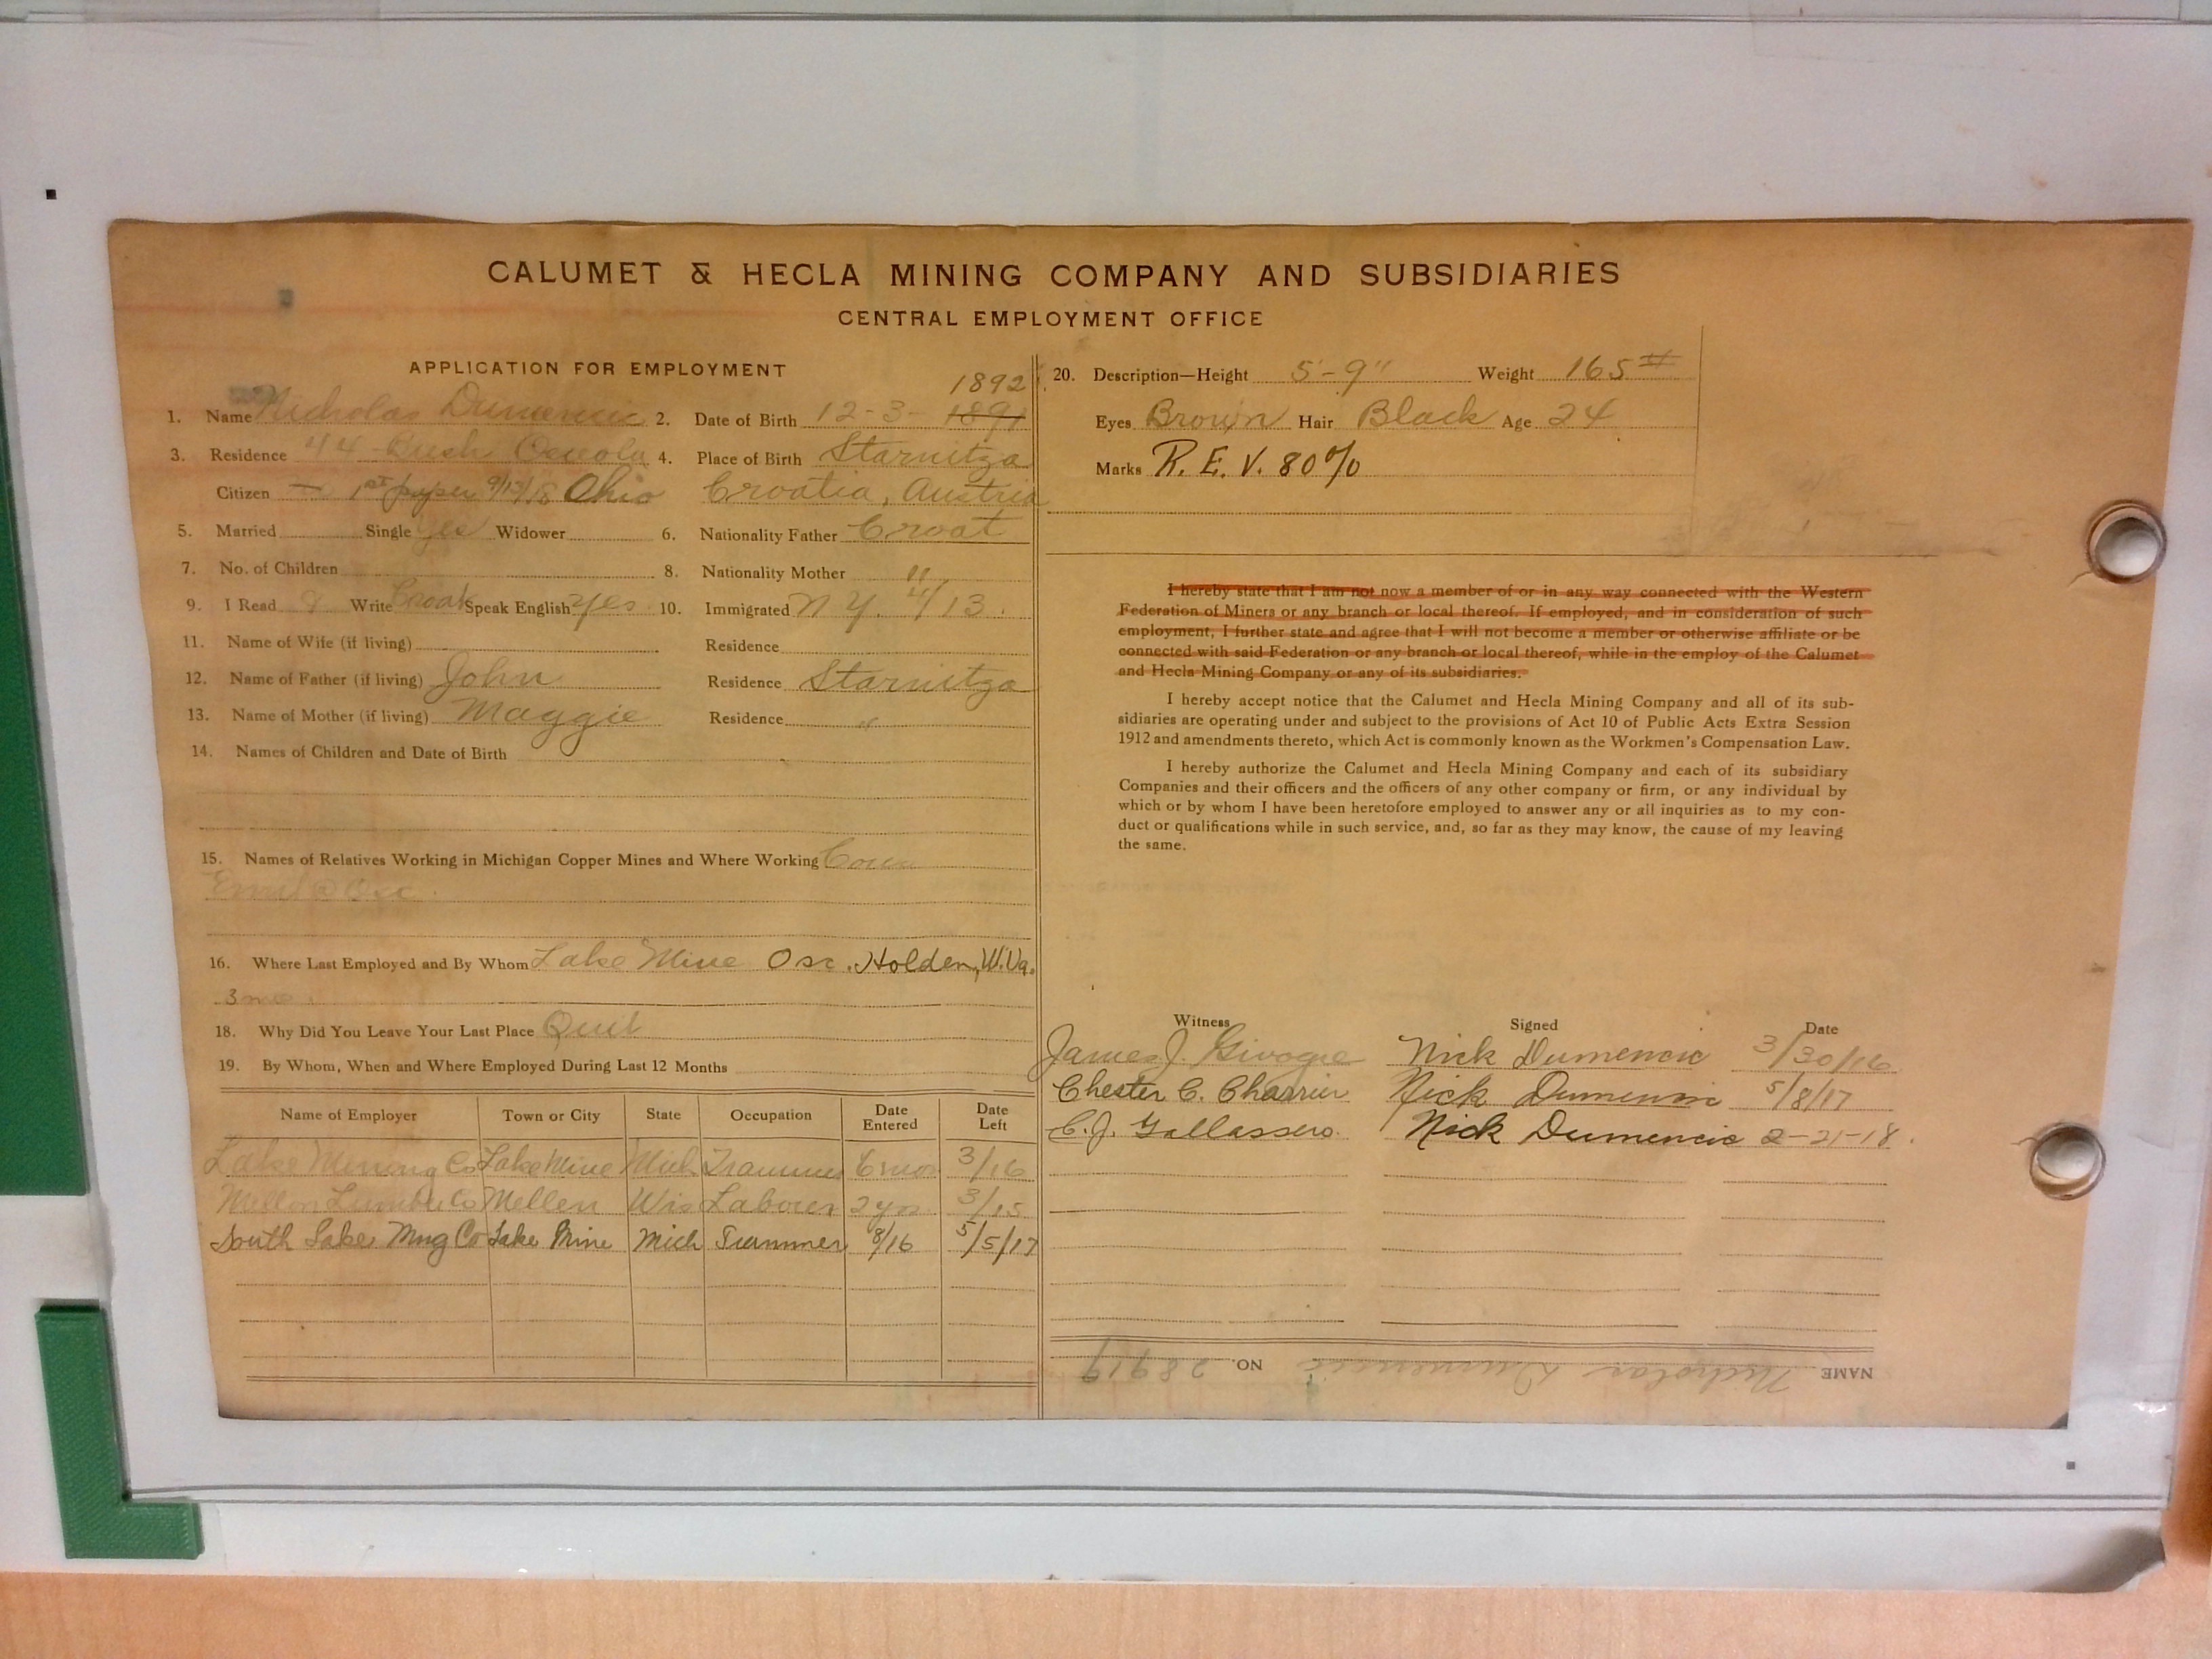 CALUMET & HECLA MINING COMPANY AND SUBSIDIARIES
CENTRAL EMPLOYMENT OFFICE
APPLICATION FOR EMPLOYMENT
1892
1. Name Nicholas Dumencic 2. Date of Birth 12-3-1891
3. Residence 44 Osceola 4. Place of Birth Starnitza
Citizen — 1st paper 9/13/18 Ohio Croatia, Austria
5. Married Single Yes Widower 6. Nationality Father Croat
7. No. of Children 8. Nationality Mother "
9. I Read Write Croat Speak English Yes 10. Immigrated N Y. 4/13.
11. Name of Wife (if living) Residence
12. Name of Father (if living) John Residence Starnitza
13. Name of Mother (if living) Maggie Residence "
14. Names of Children and Date of Birth
15. Names of Relatives Working in Michigan Copper Mines and Where Working Cousin
Emil @ Osc.
16. Where Last Employed and By Whom Lake Mine Osc. Holden, W.Va.
3 mo
18. Why Did You Leave Your Last Place Quit
19. By Whom, When and Where Employed During Last 12 Months
Name of Employer Town or City State Occupation Date Entered Date Left
Lake Mining Co Lake Mine Mich Trammer 6 mos 3/16
Mellen Lumber Co Mellen Wis Laborer 2 yrs 3/15
South Lake Mng Co Lake Mine Mich Trammer 8/16 5/5/17
20. Description—Height 5'-9" Weight 165#
Eyes Brown Hair Black Age 24
Marks R. E. V. 80%
I hereby state that I am not now a member of or in any way connected with the Western
Federation of Miners or any branch or local thereof. If employed, and in consideration of such
employment, I further state and agree that I will not become a member or otherwise affiliate or be
connected with said Federation or any branch or local thereof, while in the employ of the Calumet
and Hecla Mining Company or any of its subsidiaries.
I hereby accept notice that the Calumet and Hecla Mining Company and all of its sub-
sidiaries are operating under and subject to the provisions of Act 10 of Public Acts Extra Session
1912 and amendments thereto, which Act is commonly known as the Workmen's Compensation Law.
I hereby authorize the Calumet and Hecla Mining Company and each of its subsidiary
Companies and their officers and the officers of any other company or firm, or any individual by
which or by whom I have been heretofore employed to answer any or all inquiries as to my con-
duct or qualifications while in such service, and, so far as they may know, the cause of my leaving
the same.
Witness Signed Date
James J. Nick Dumencic 3/30/16
Chester C. Charrier Nick Dumencic 5/8/17
C. J. Gallassero. Nick Dumencic 2-21-18.
NAME Nicholas Dumencic NO. 28919